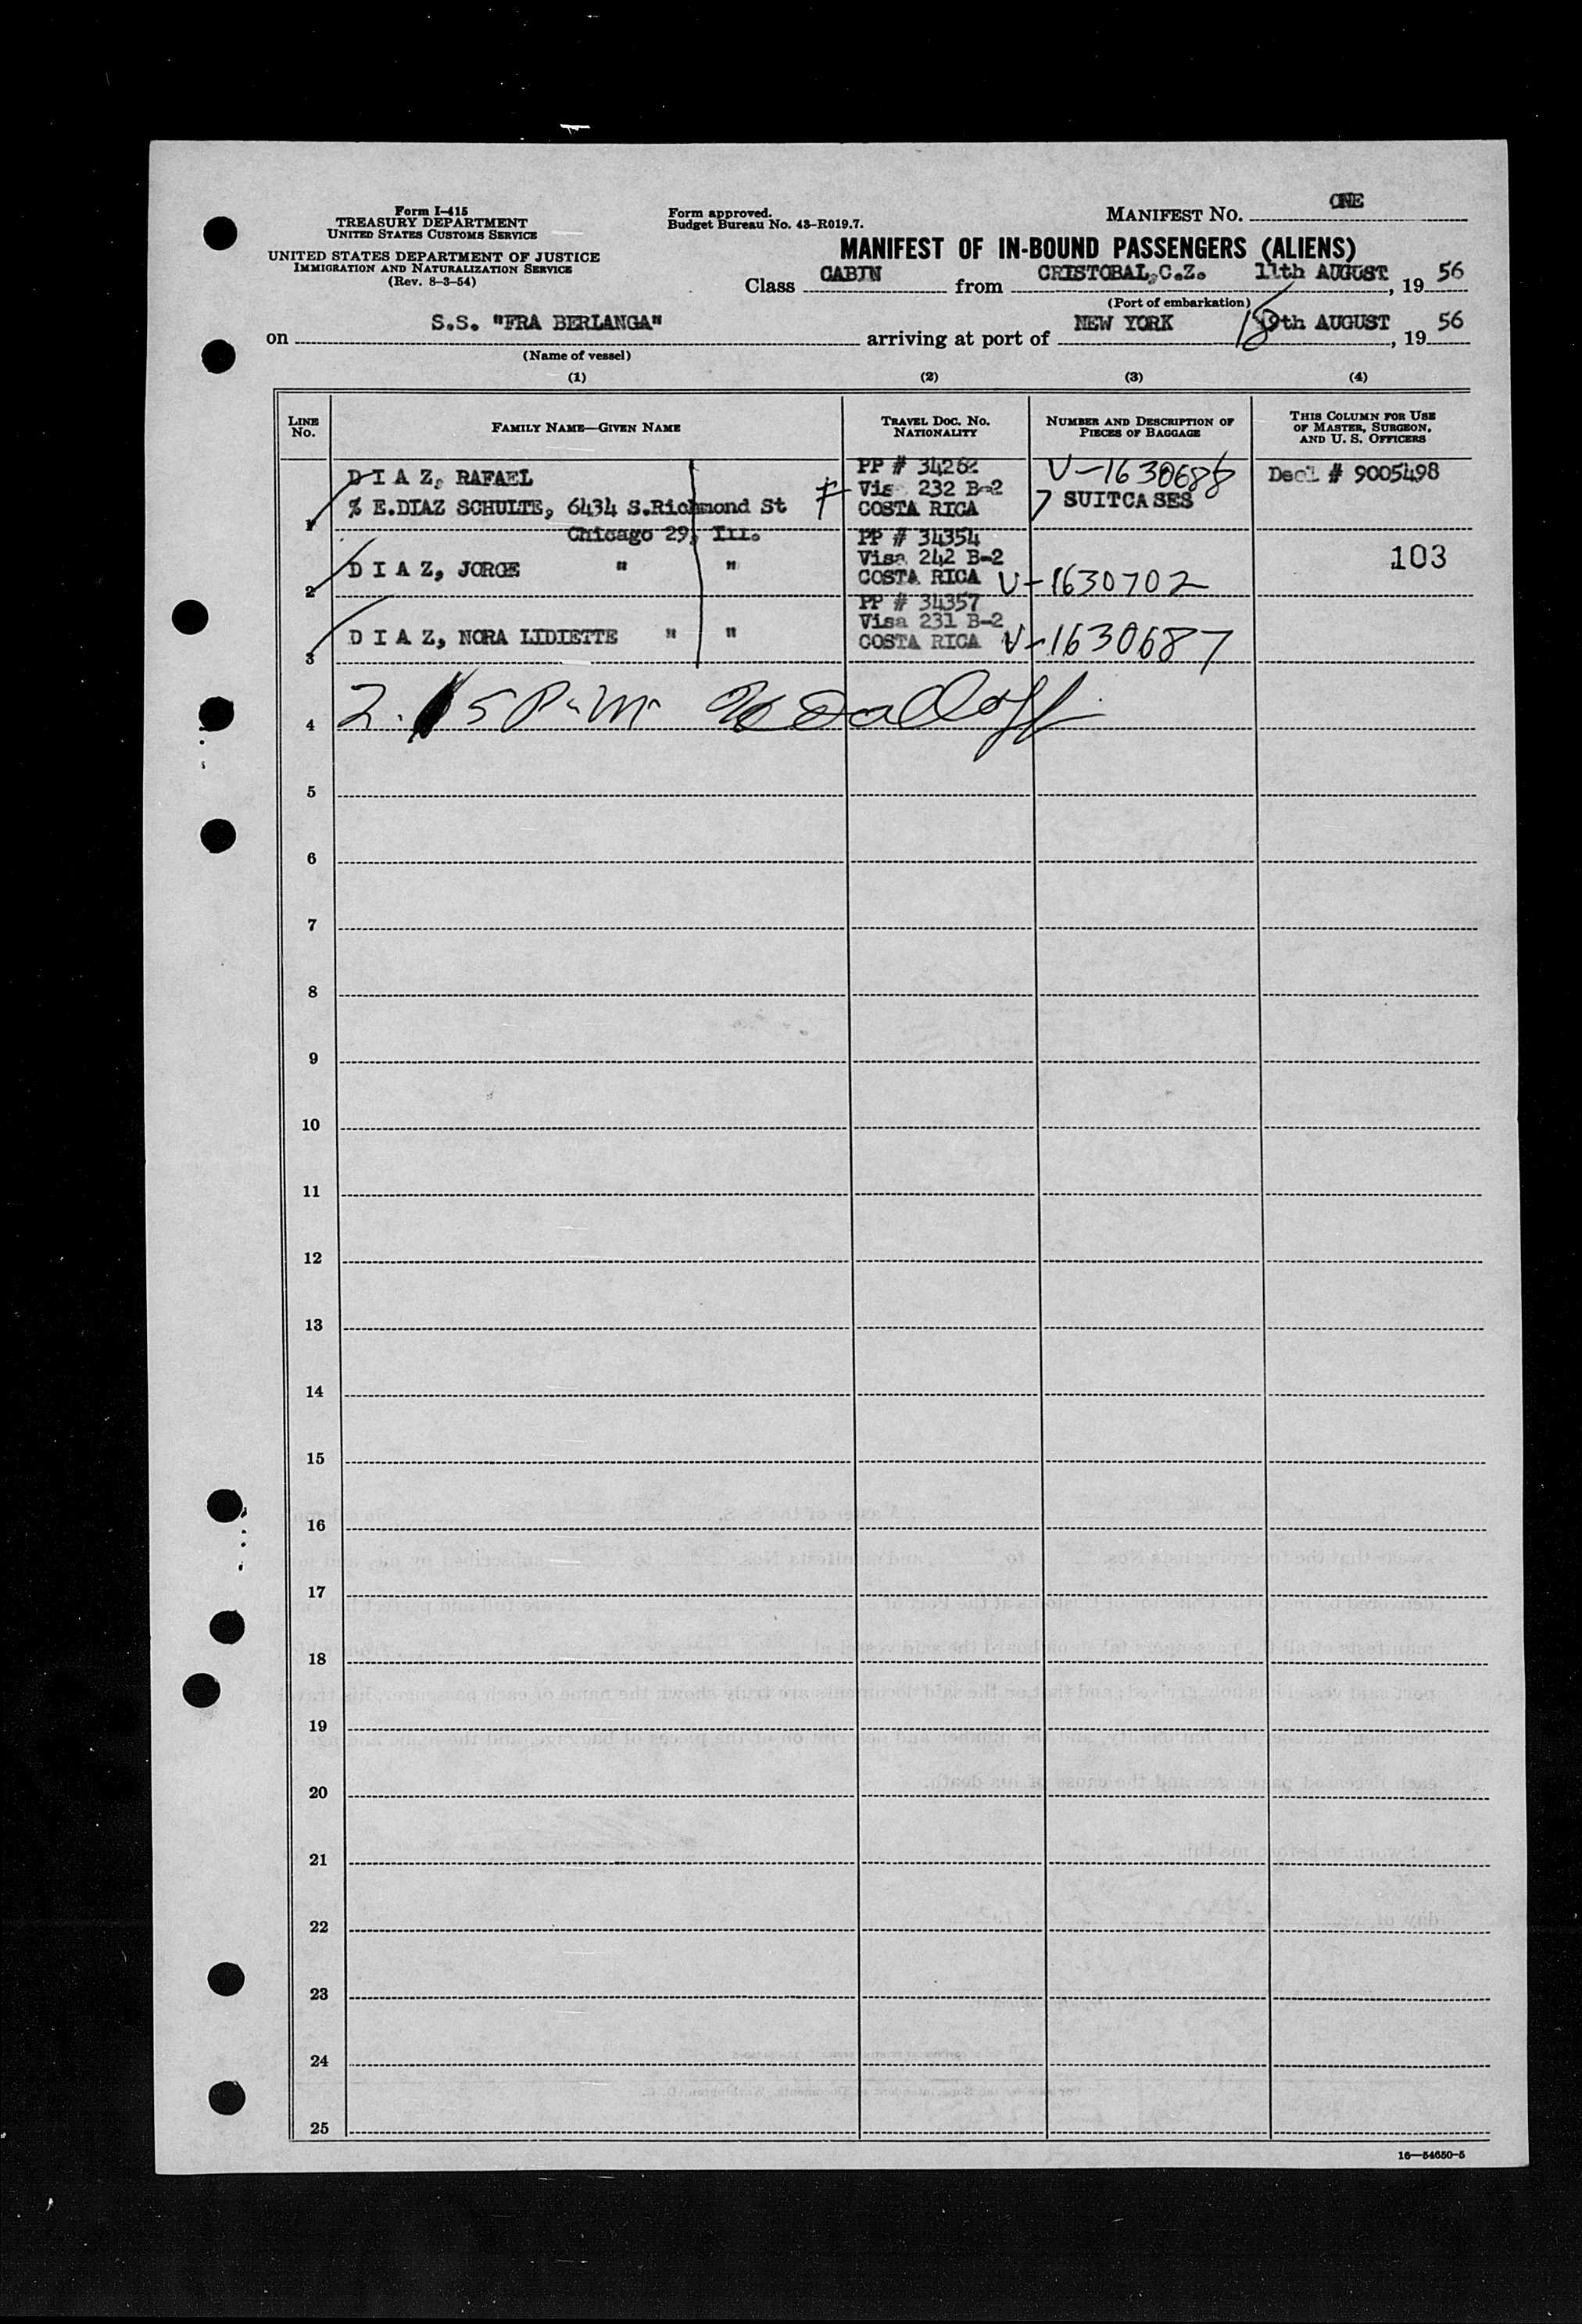 Form I-415
TREASURY DEPARTMENT
UNITED STATES CUSTOMS SERVICE
UNITED STATES DEPARTMENT OF JUSTICE
IMMIGRATION AND NATURALIZATION SERVICE
(Rev. 8-3-54)
Form approved.
Budget Bureau No. 43-R019.7.
MANIFEST NO. ONE
MANIFEST OF IN-BOUND PASSENGERS (ALIENS)
Class CABIN from CRISTOBAL, C.Z. 11th AUGUST, 19 56
(Port of embarkation)
on S.S. "FRA BERLANGA" arriving at port of NEW YORK 18 th AUGUST, 19 56
(Name of vessel)
(1) (2) (3) (4)
LINE NO. FAMILY NAME—GIVEN NAME TRAVEL DOC. NO. NATIONALITY NUMBER AND DESCRIPTION OF PIECES OF BAGGAGE THIS COLUMN FOR USE OF MASTER, SURGEON, AND U. S. OFFICERS
D I A Z, RAFAEL PP # 34262 V-1630688 Decl # 9005498
% E.DIAZ SCHULTE, 6434 S.Richmond St Vis 232 B-2 7 SUITCASES
1 Chicago 29, Ill. COSTA RICA
PP # 34354
D I A Z, JORGE " " Visa 242 B-2 103
2 COSTA RICA V-1630702
PP # 34357
Visa 231 B-2
D I A Z, NORA LIDIETTE " " COSTA RICA V-1630687
3
4 2. 5 P.M.
5
6
7
8
9
10
11
12
13
14
15
16
17
18
19
20
21
22
23
24
25
16—54650-5